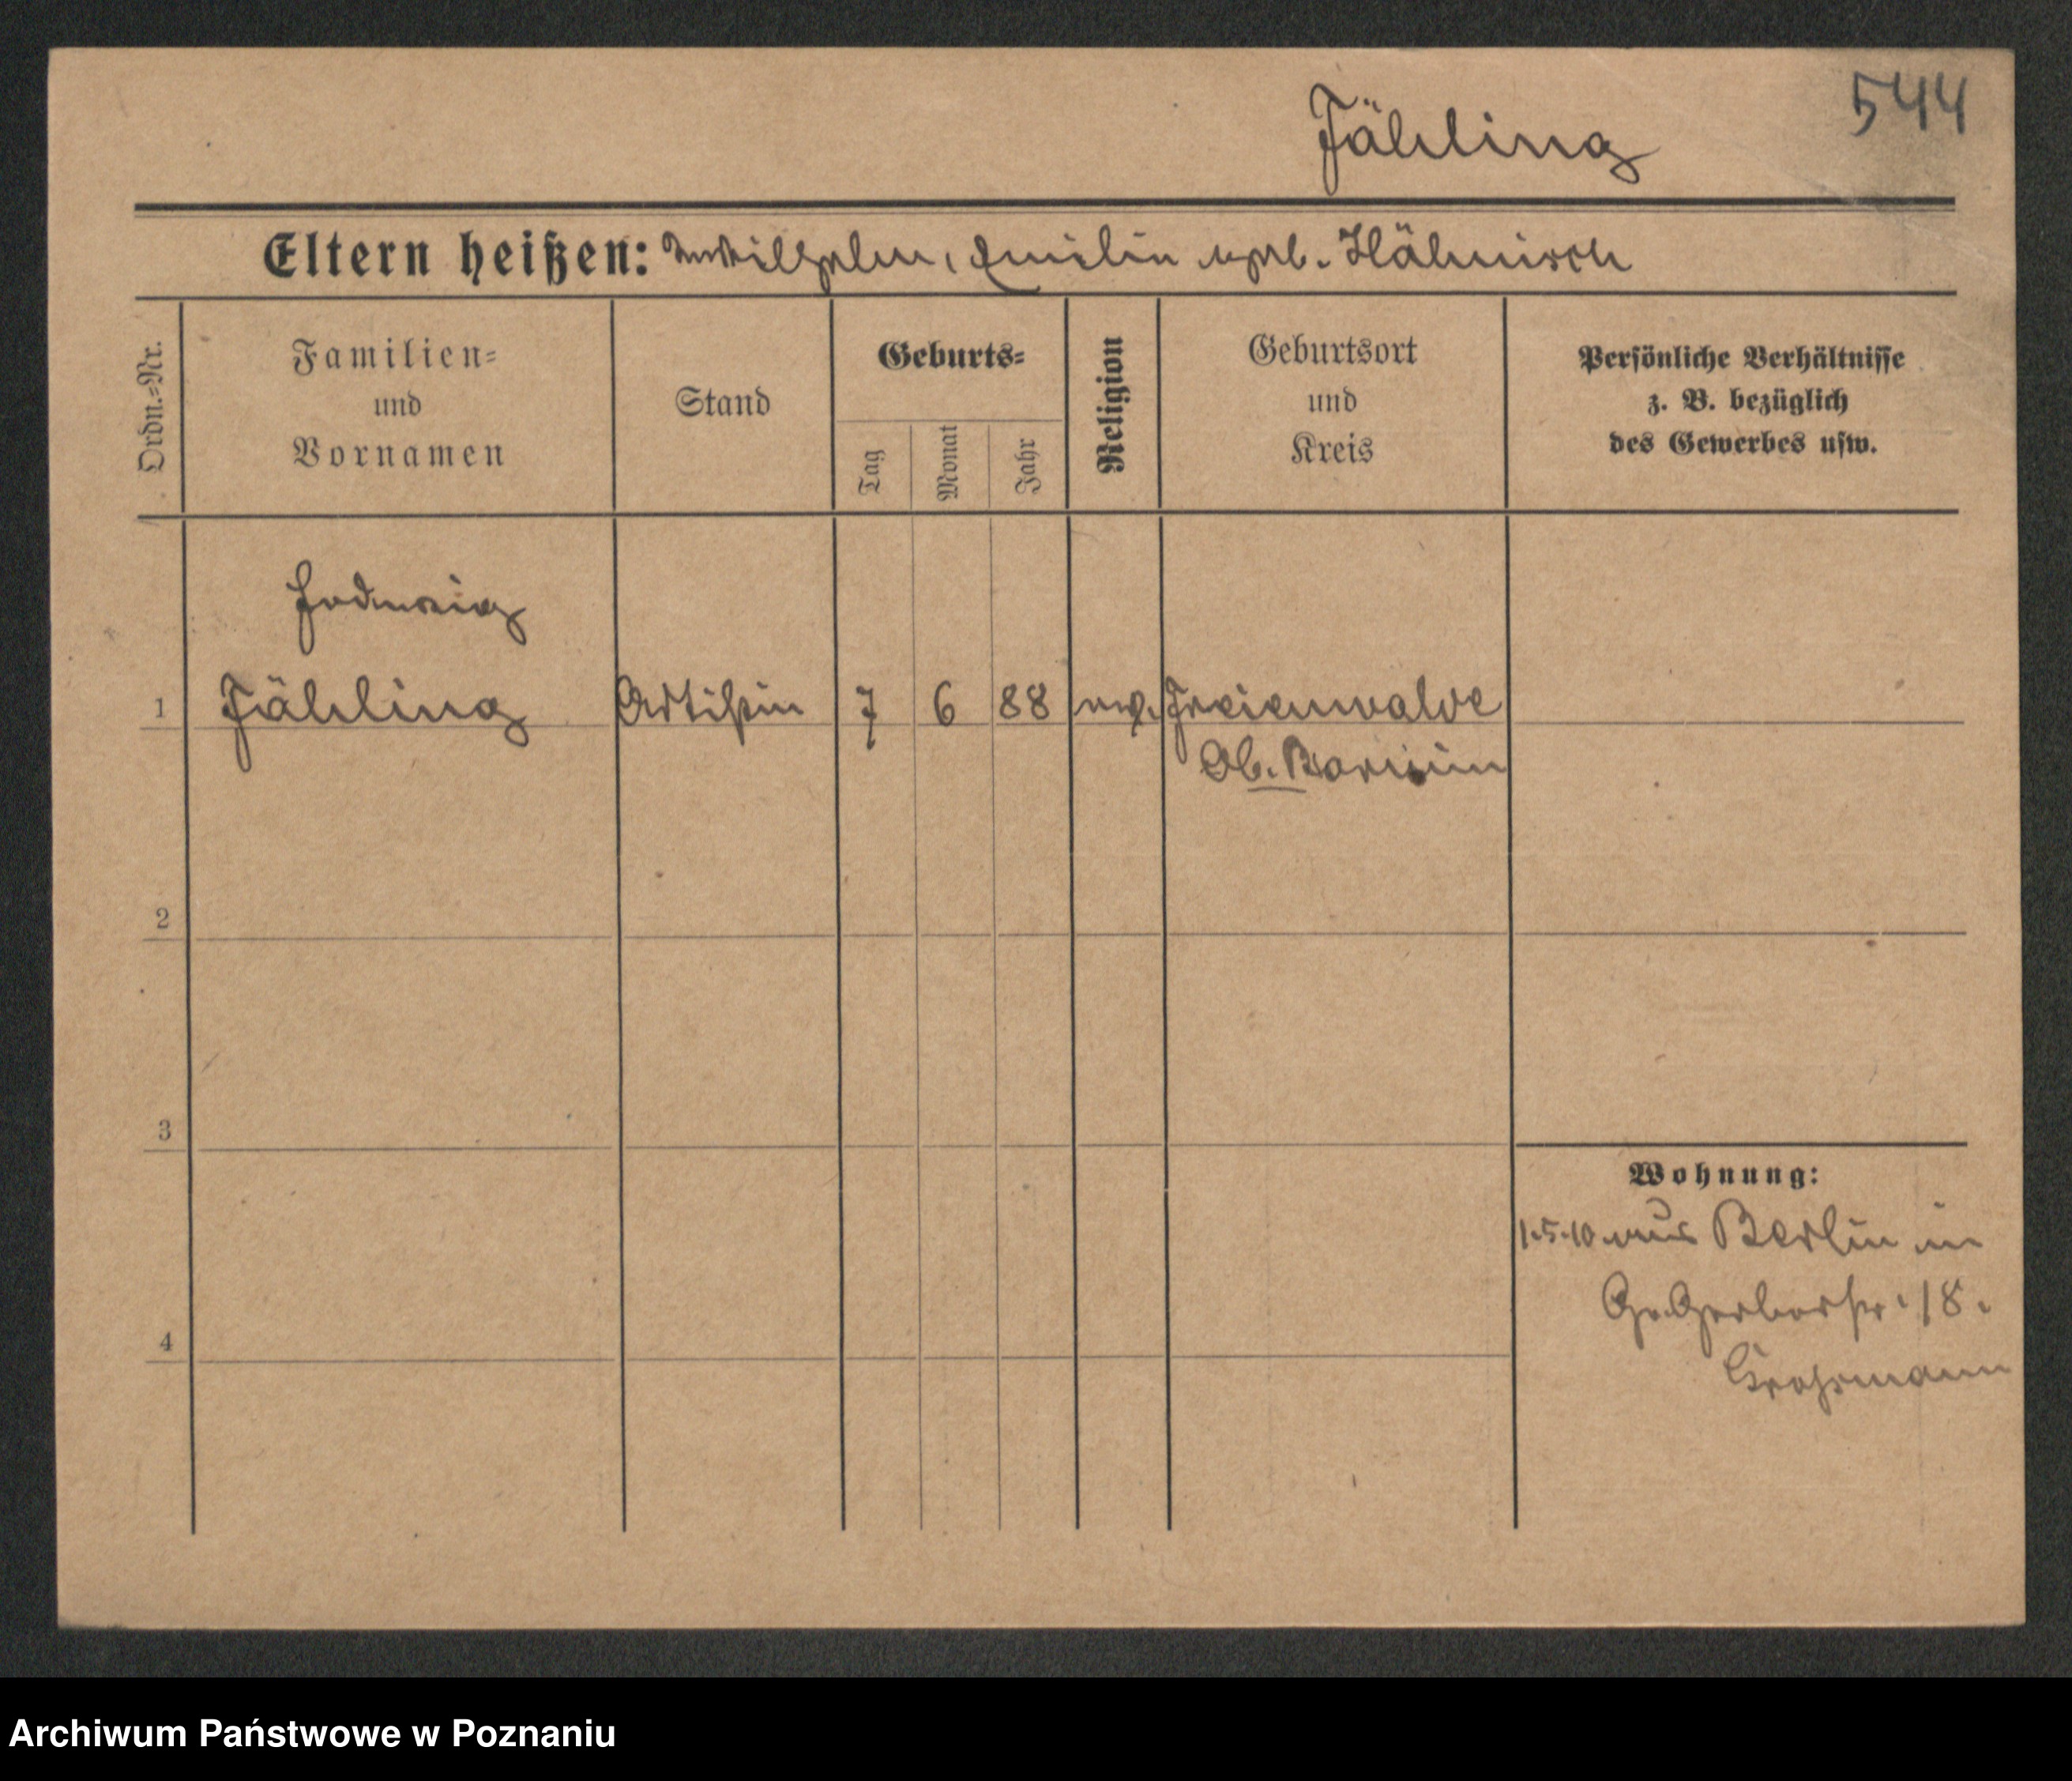 544
Fähling
Eltern heißen: Wilhelm, Emilie geb. Hähnisch
Ordn.=Nr.
Familien=
und
Vornamen
Stand
Geburts=
Tag
Monat
Jahr
Religion
Geburtsort
und
Kreis
Persönliche Verhältnisse
z. B. bezüglich
des Gewerbes usw.
Hedwig
1 Fähling Artistin 7 6 88 ev. Freienwalde
Ob. Barnim
2
3
Wohnung:
1.5.10 aus Berlin in
Gr. Gerberstr. 18.
Grossmann
4
Archiwum Państwowe w Poznaniu